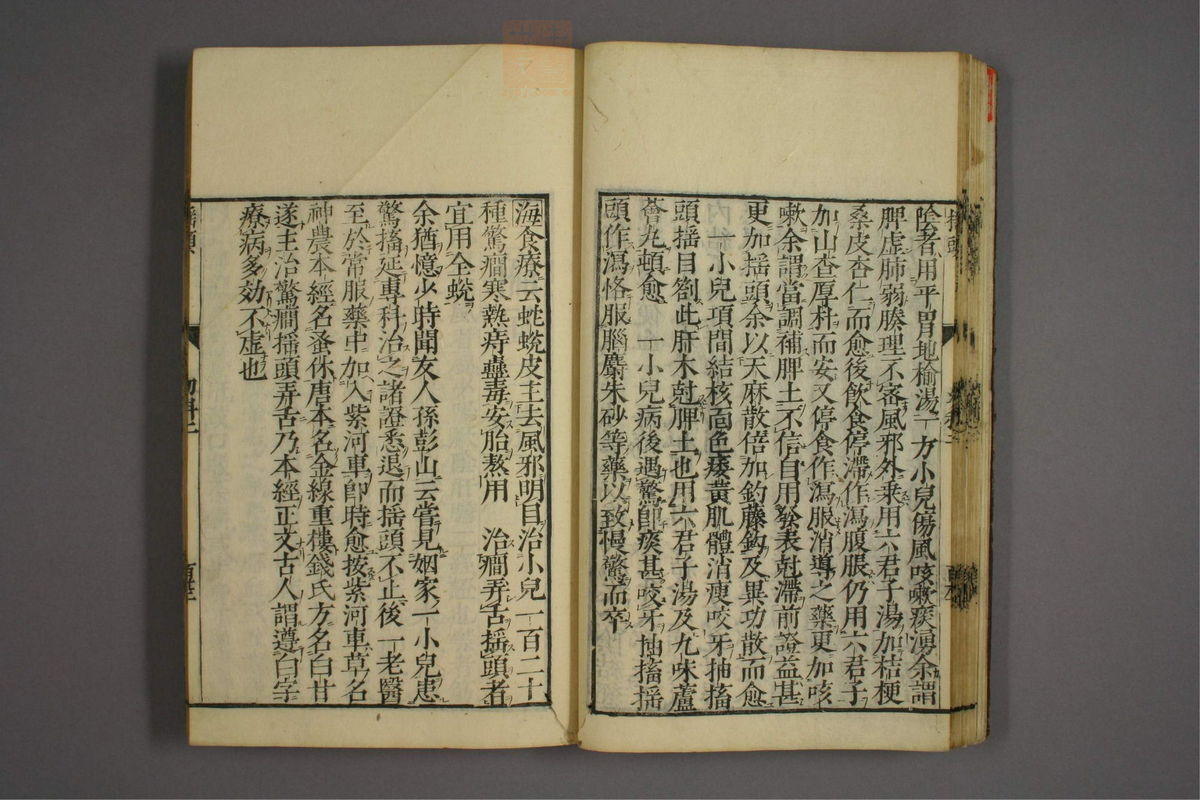 陰者用平胃地榆湯一方小兒傷風咳嗽痰湧余謂
脾虛肺弱腠理不密風邪外乗用六君子湯加桔梗
桑皮杏仁而愈後飲食停滯作瀉腹脹仍用六君子
加山查厚朴而安又停食作瀉服消導之藥更加咳
嗽余謂當調補脾土不信自用發表尅滯前證益甚
更加揺頭余以天麻散倍加釣藤鈎及異功散而愈
一小兒項間結核面色痿黄肌體消瘦咬牙抽搐
頭揺目劄此肝木尅脾土也用六君子湯及九味蘆
薈丸頓愈 一小兒病後遇驚即痰甚咬牙抽搐揺
頭作瀉恪服腦麝朱砂等藥以致慢驚而卒
海食療云蛇蛻皮主去風邪明目治小兒一百二十
種驚癎寒熱痔蠱毒安胎熬用 治癎弄舌揺頭者
宜用全蛻
余猶憶少時聞友人孫彭山云嘗見姻家一小兒患
驚搐延專科治之諸證悉退而揺頭不止後一老醫
至於常服藥中加入紫河車即時愈按紫河車草名
神農本經名蚤休唐本名金線重樓錢氏方名白甘
遂主治驚癎揺頭弄舌乃本經正文古人謂遵白字
療病多効不虚也